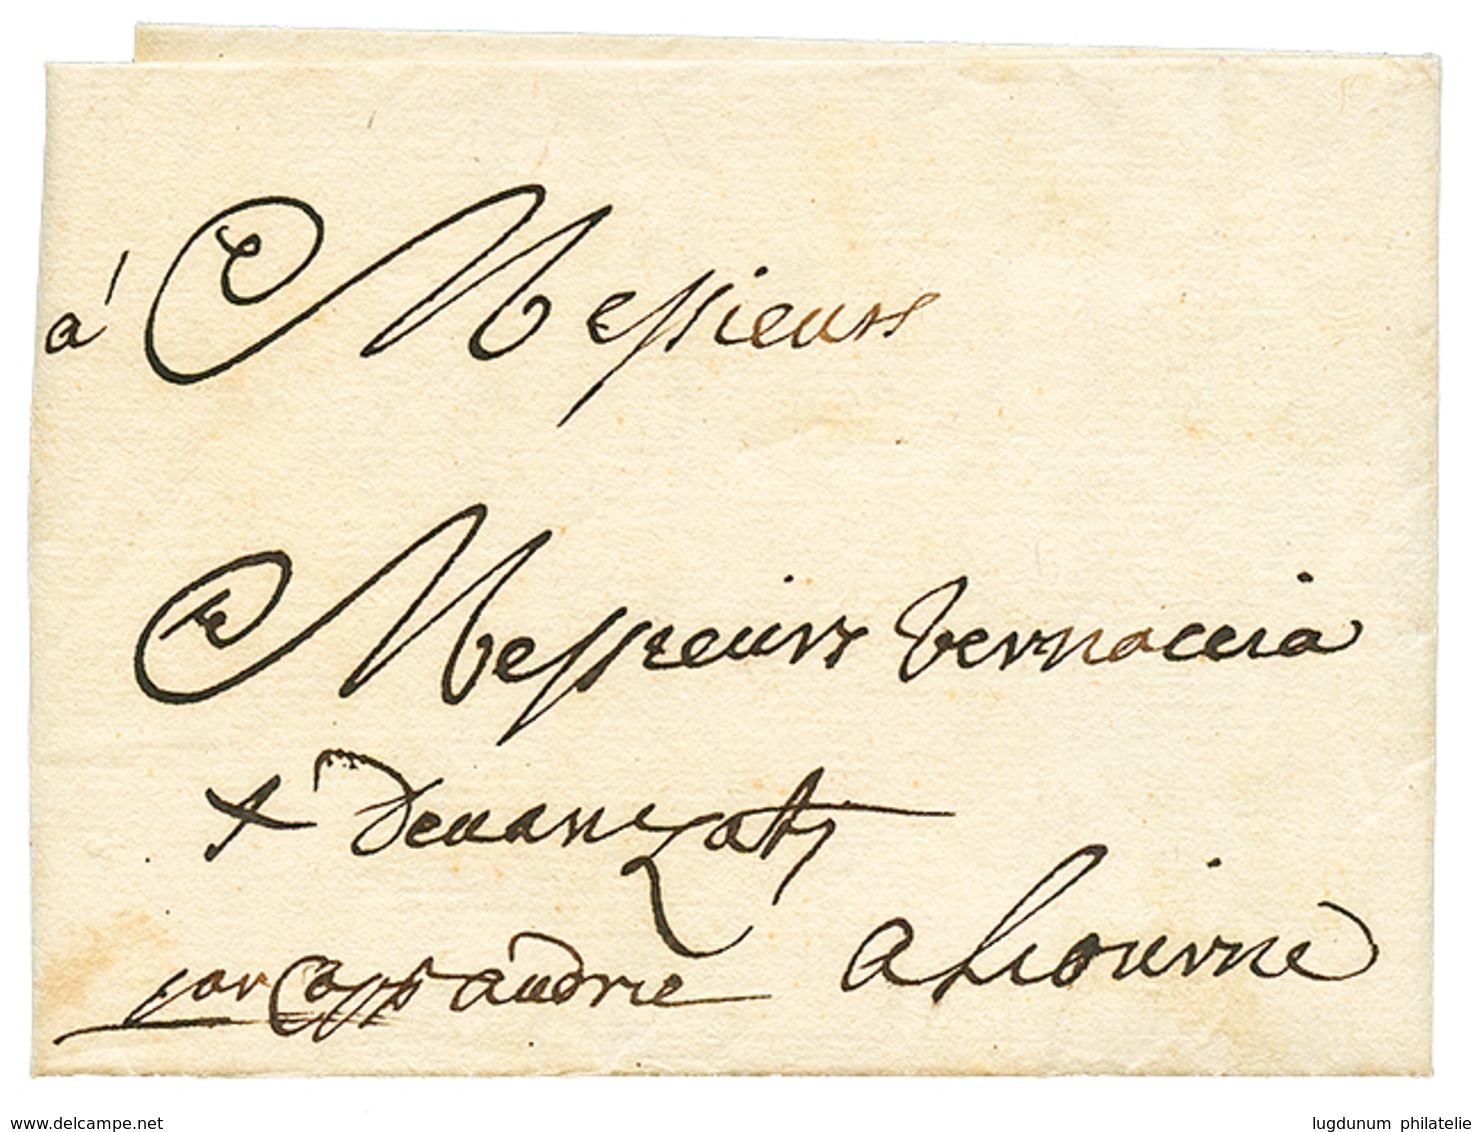 à Messieurs
Messieurs Vernaccia
+ Devanzatj
par Capp Andrie
a Liourne
delcampe.net
lugdunum philatelie